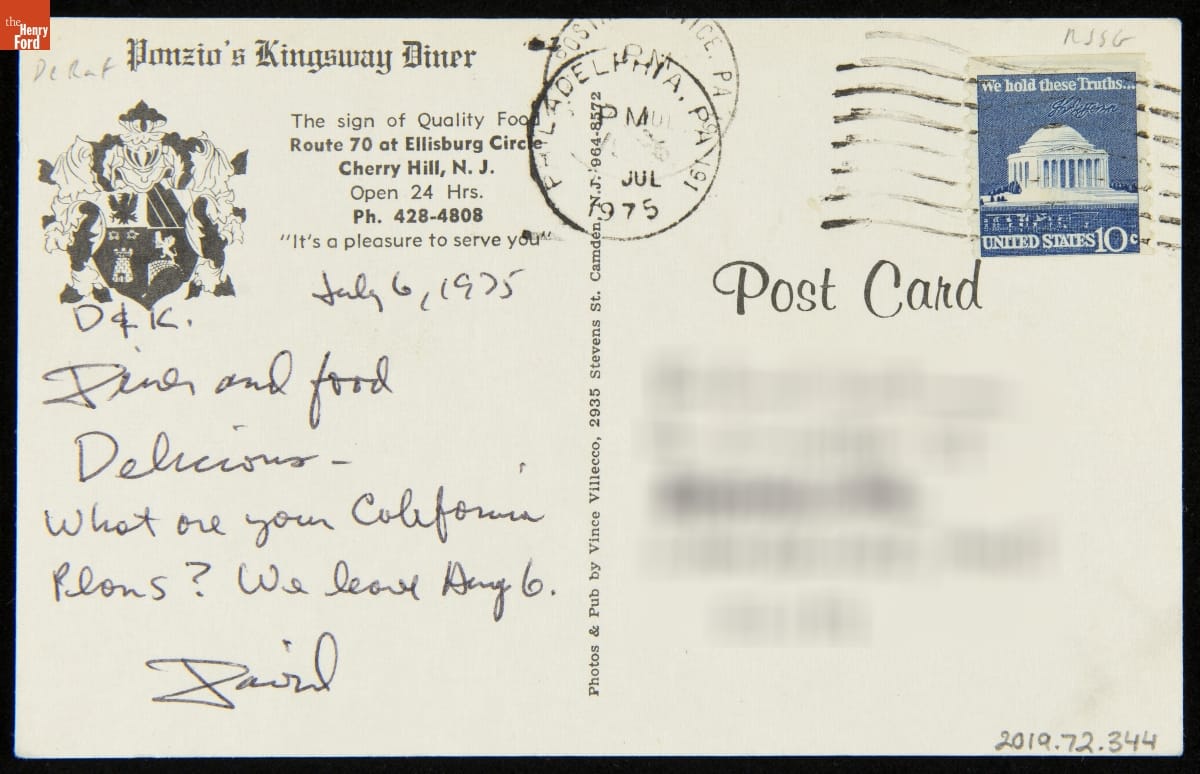 the
Henry
Ford
Ponzio's Kingsway Diner
The sign of Quality Food
Route 70 at Ellisburg Circle
Cherry Hill, N. J.
Open 24 Hrs.
Ph. 428-4808
"It's a pleasure to serve you"
July 6, 1975
D & K.
Diner and food
Delicious -
What are your California
Plans? We leave Aug 6.
David
Photos & Pub by Vince Villecco, 2935 Stevens St. Camden, N.J. 964-8572
PHILADELPHIA, PA 191
PM
JUL
1975
PM
We hold these Truths...
UNITED STATES 10c
Post Card
2019.72.344